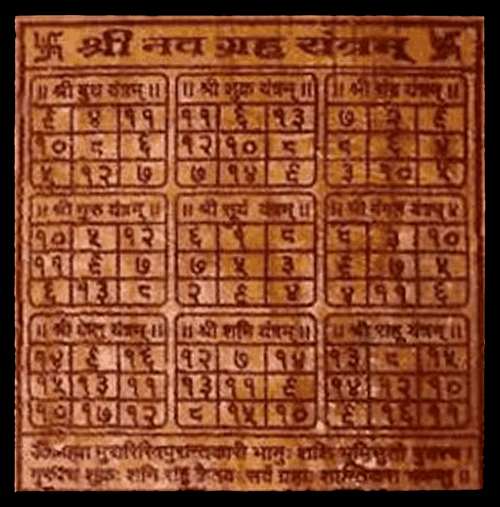 श्री नव ग्रह यंत्रम्
॥ श्री बुध यंत्रम् ॥ ॥ श्री शुक्र यंत्रम् ॥ ॥ श्री चंद्र यंत्रम् ॥
९ ४ ११ ११ ६ १३ ७ २ ९
१० ८ ६ १२ १० ८ ८ ६ ४
५ १२ ७ ७ १४ ९ ३ १० ५
॥ श्री गुरु यंत्रम् ॥ ॥ श्री सूर्य यंत्रम् ॥ ॥ श्री मंगल यंत्रम्
१० ५ १२ ६ १ ८ ८ ३ १०
११ ९ ७ ७ ५ ३ ९ ७ ५
६ १३ ८ २ ९ ४ ४ ११ ६
॥ श्री केतु यंत्रम् ॥ ॥ श्री शनि यंत्रम् ॥ ॥ श्री राहू यंत्रम् ॥
१४ ९ १६ १२ ७ १४ १३ ८ १५
१५ १३ ११ १३ ११ ९ १४ १२ १०
१० १७ १२ ८ १५ १० ९ १६ ११
भानुः शशि भूमिसुतो बुधश्च ।
शुक्रः शनि राहु केतव सर्वे ग्रहाः